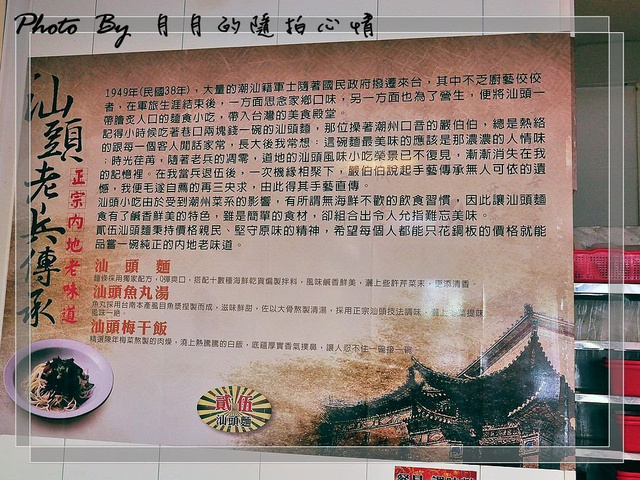 Photo By 月月的隨拍心情
汕頭老兵傳承
正宗內地老味道
1949年(民國38年),大量的潮汕籍軍士隨著國民政府撥遷來台,其中不乏廚藝佼佼
者,在軍旅生涯結束後,一方面思念家鄉口味,另一方面也為了營生,便將汕頭一
帶膾炙人口的麵食小吃,帶入台灣的美食殿堂。
記得小時候吃著巷口兩塊錢一碗的汕頭麵,那位操著潮州口音的嚴伯伯,總是熱絡
的跟每一個客人閒話家常,長大後我常想:這碗麵最美味的應該是那濃濃的人情味
;時光荏苒,隨著老兵的凋零,道地的汕頭風味小吃榮景已不復見,漸漸消失在我
的記憶裡。在我當兵退伍後,一次機緣相聚下,嚴伯伯說起手藝傳承無人可依的遺
憾,我便毛遂自薦的再三央求,由此得其手藝直傳。
汕頭小吃由於受到潮州菜系的影響,有所謂無海鮮不歡的飲食習慣,因此讓汕頭麵
食有了鹹香鮮美的特色,雖是簡單的食材,卻組合出令人允指難忘美味。
貳伍汕頭麵秉持價格親民、堅守原味的精神,希望每個人都能只花銅板的價格就能
品嘗一碗純正的內地老味道。
汕頭麵
麵條採用獨家配方,Q彈爽口,搭配十數種海鮮乾貨煸製拌料,風味鹹香鮮美,灑上些許芹菜末,更添清香
汕頭魚丸湯
魚丸採用台南本產虱目魚漿捏製而成,滋味鮮甜,佐以大骨熬製清湯,採用正宗汕頭技法調味,灑上芹菜提味
風味一絕
汕頭梅干飯
精選陳年梅菜熬製的肉燥,澆上熱騰騰的白飯,底蘊厚實香氣撲鼻,讓人忍不住一碗接一碗
貳伍
汕頭麵